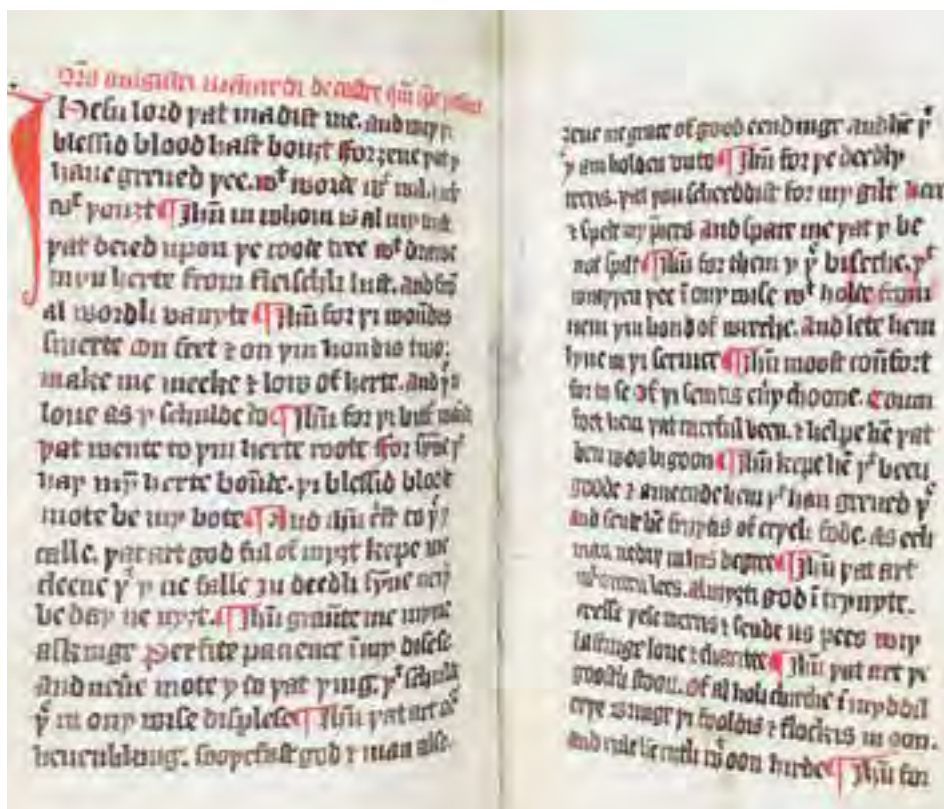 Jhesu lord þat madist me. and wiþ þi
blessid blood hast bouȝt fforȝeue þat y
haue greued þee. wᵗ worde wᵗ wil. and
wᵗ þouȝt ¶ Jhū in whom is al my trist
þat deied upon þe roode tree wᵗ drawe
myn herte from fleischli lust. and fro
al wordli vanyte ¶ Jhū for þi woūdis
smerte on feet ⁊ on þin hondis two:
make me meeke ⁊ low of herte. and þee
loue as y schulde do ¶ Jhū for þi
þat wente to þin herte roote ffor synne þᵗ
haþ myn herte boūde. þi blessid blood
mote be my bote ¶ And Jhū c̄st to þee
calle. þat art god ful of myȝt kepe me
cleene þᵗ y ne falle in deedli synne neiþ
be day ne nyȝt. ¶ Jhū graūte me myne
askinge perfite pacience ī my disese
and neūe mote y do þat þing. þᵗ schulde
þee in ony wise displese ¶ Jhū þat art oᵉ
heuenli kyng. sooþefast god ⁊ man also.
ȝeue me grace of good eendinge and hē þᵗ
y am holden vnto ¶ Jhū for þe deedly
teeris. þat þou scheeddist for my gilt heere
⁊ speede my p̄iers and spare me þat y be
not spilt ¶ Jhū for them y þee biseche. þᵗ
wraþþen þee ī ony wise wᵗ holde from
hem þin hond of wreche. and lete hem
lyue in þi seruice ¶ Jhū moost coūfort
for to se of þi seintis euy choone. Coum
fort hem þat careful been. ⁊ helpe hē þat
ben woo bigoon ¶ Jhū kepe hē þᵗ been
goode ⁊ ameende hem þᵗ han greued þee
and sende hē fruytis of erþeli fode. as ech
man nediþ in his degree ¶ Jhū þat art
wᵗ outen lees. almyȝti god ī trynyte.
ceesse þese werris ⁊ sende us pees wiþ
lastinge loue ⁊ charitee ¶ Jhū þat art þe
goostli stoon. of al holi chirche ī myddil
erþe bringe þi fooldis ⁊ flockis in oon.
and rule hē riȝtli wᵗ oon hirde ¶ Jhū for